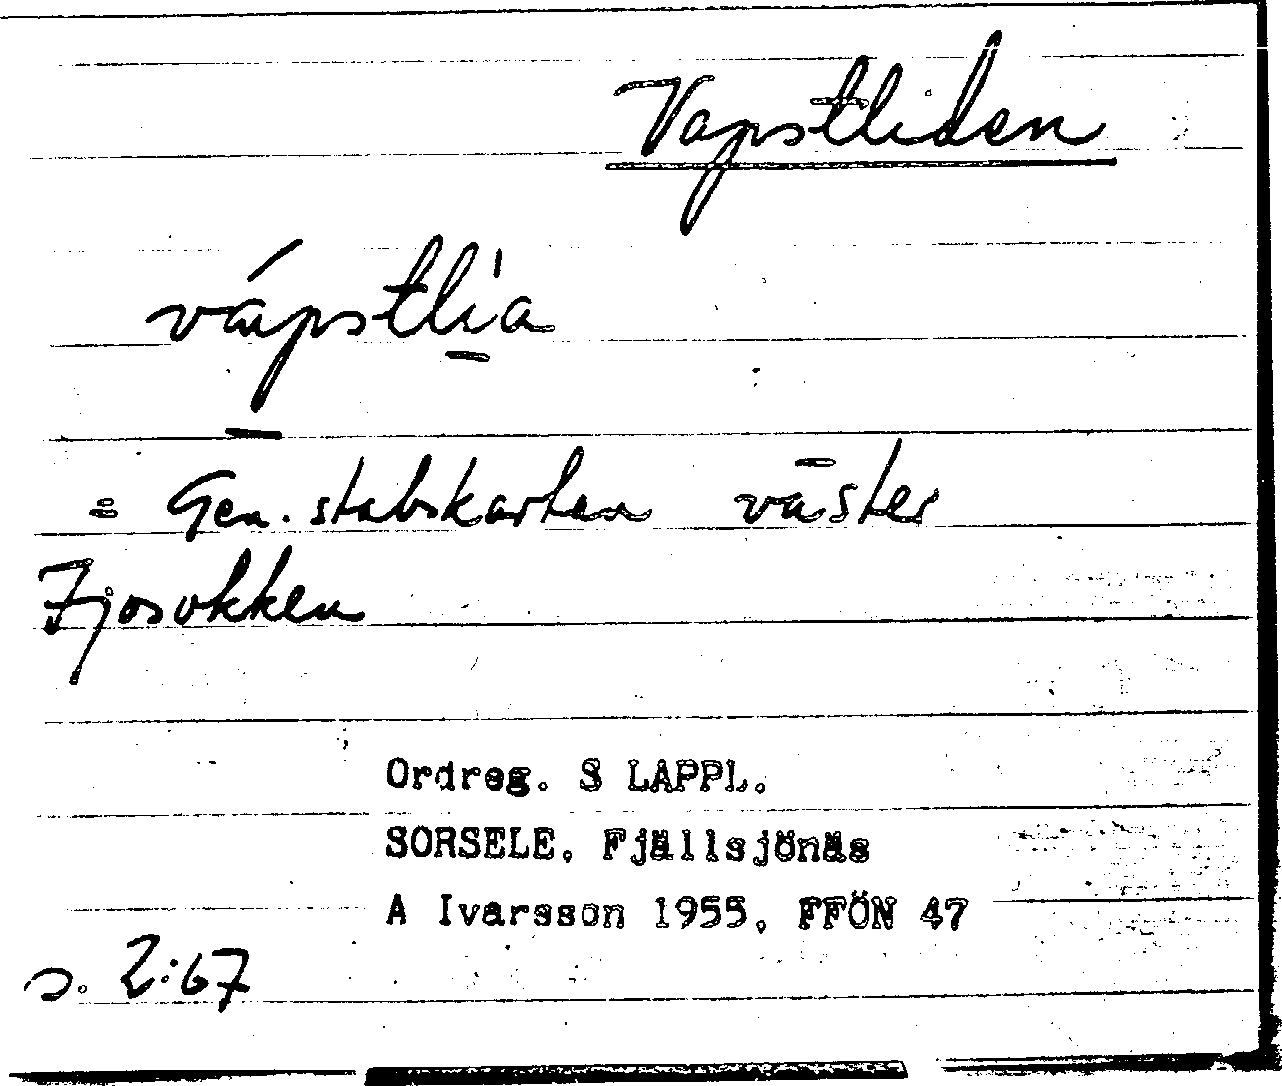 Vapstliden
vápstli̱'a
= Gen. stabskartan väster
Fjosokken
Ordreg. S LAPPL.
SORSELE. Fjällsjönäs
A Ivarsson 1955. FFÖN 47
s. 2:67